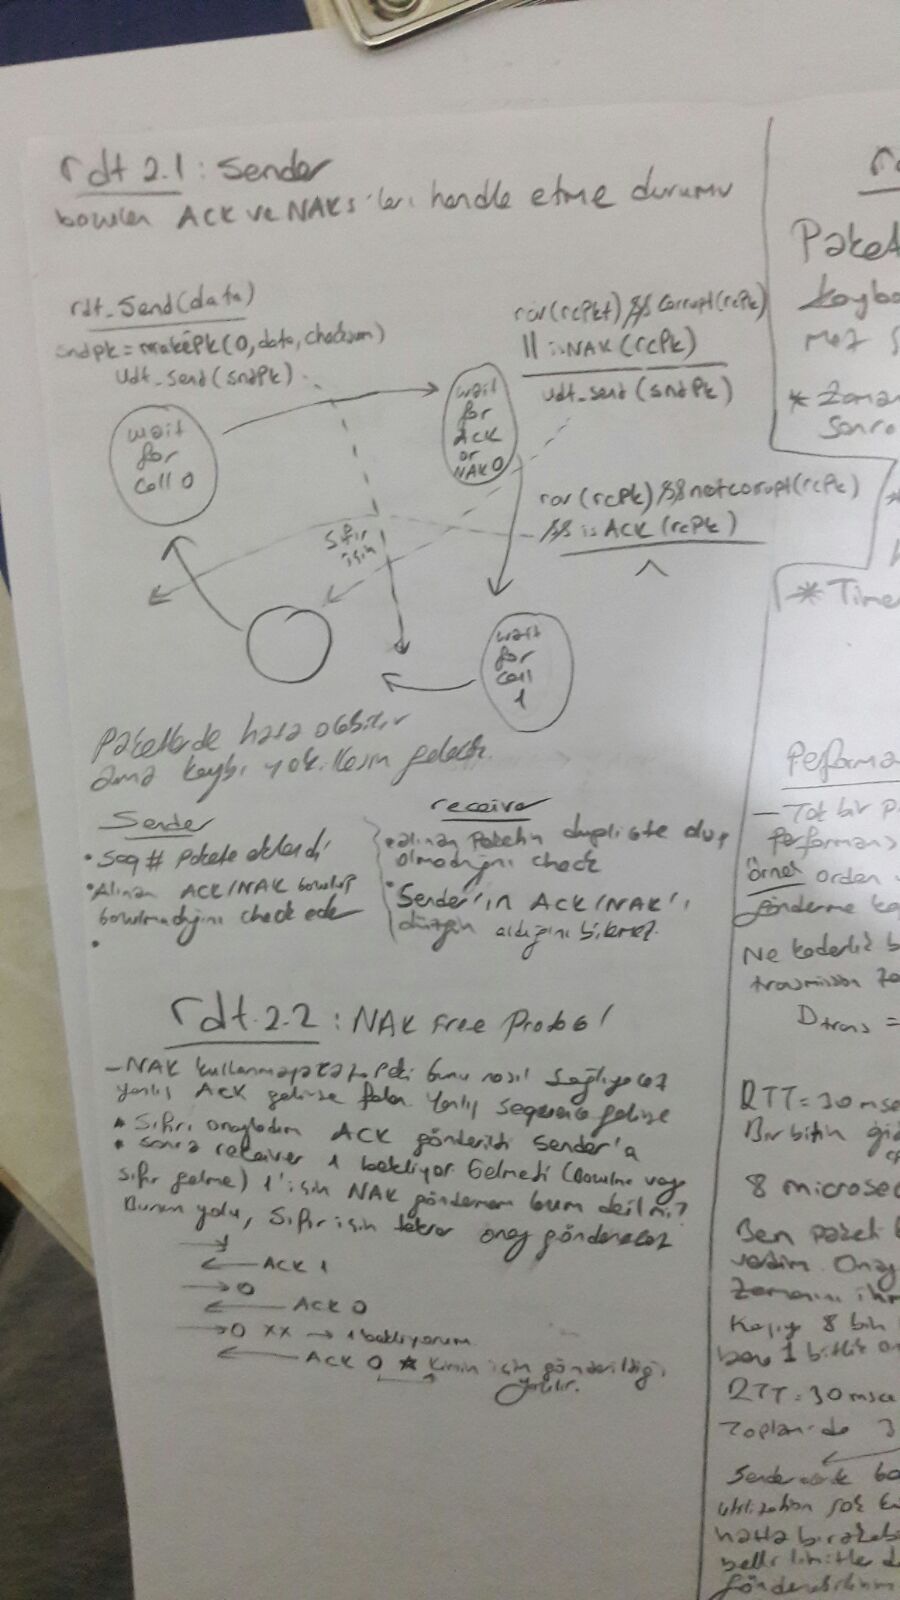 rdt 2.1 : Sender
bozulan ACK ve NAK's 'ları handle etme durumu
rdt_send(data)
sndpk = makepk(0, data, checksum)
udt_send(sndpk)
rcv(rcpkt) && corrupt(rcpk)
|| isNAK(rcPk)
udt_send(sndPk)
wait
for
call 0
wait
for
ACK
or
NAK 0
rcv(rcPk) && notcorrupt(rcPk)
&& isACK(rcPk)
Λ
sıfır
için
wait
for
call
1
Paketlerde hata olabilir
ama kaybı yok. Kesin gelecek.
Sender
• Seq # pakete eklendi
• Alınan ACK/NAK bozulup
bozulmadığını check eder
•
receiver
• alınan Paketin duplicate olup
olmadığını check
• Sender'ın ACK/NAK'ı
düzgün aldığını bilemez.
rdt 2.2 : NAK Free
– NAK kullanmayacağız. Peki bunu nasıl sağlıyacaz
yanlış ACK gelirse falan yanlış sequence gelirse
* Sıfırı onayladım ACK gönderildi Sender'a
* sonra receiver 1 bekliyor Gelmedi (bozulma veya
sıfır gelme) 1' için NAK göndermem lazım değil mi?
Bunun yolu, sıfır için tekrar onay göndereceğiz
1
ACK 1
0
ACK 0
0 xx → 1 bekliyorum
ACK 0 * Kimin için gönderildiği
yazılır.
Paket
* Zaman
sonra
* Time
Performa
– Tek bir p
performans
örnek
gönderme
Ne kadarlık b
D trans =
RTT = 30 mse
Bir bitin
8 microse
Ben paket
Onay
zamanını
8 bin
bana 1 bitlik
RTT = 30 msa
3
Sender
utilization çok
hatta
belli limitler